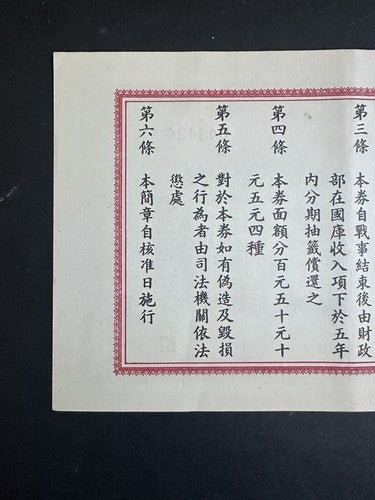 第三條 本券自戰事結束後由財政
部在國庫收入項下於五年
內分期抽籤償還之
第四條 本券面額分百元五十元十
元五元四種
第五條 對於本券如有偽造及毀損
之行為者由司法機關依法
懲處
第六條 本簡章自核准日施行